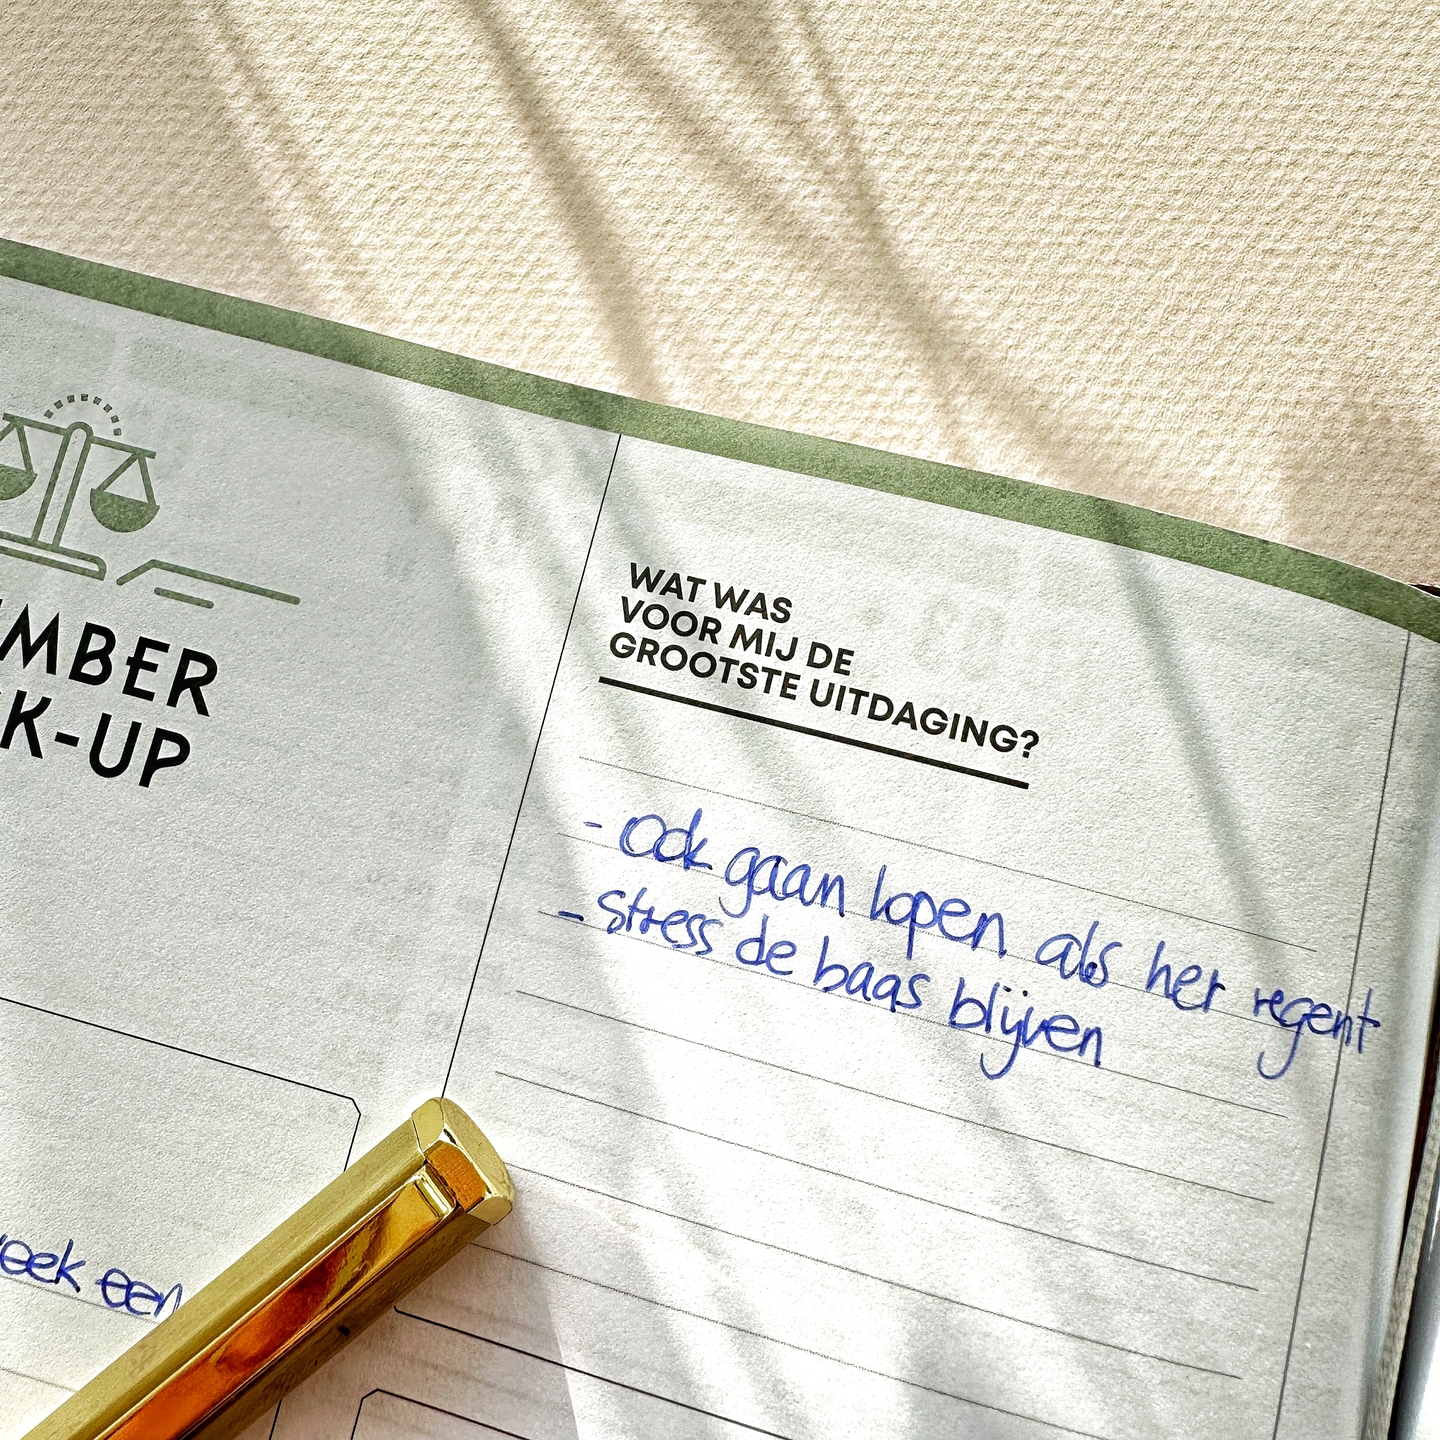 EMBER
K-UP
WAT WAS
VOOR MIJ DE
GROOTSTE UITDAGING?
- Ook gaan lopen als het regent
- Stress de baas blijven
eek een